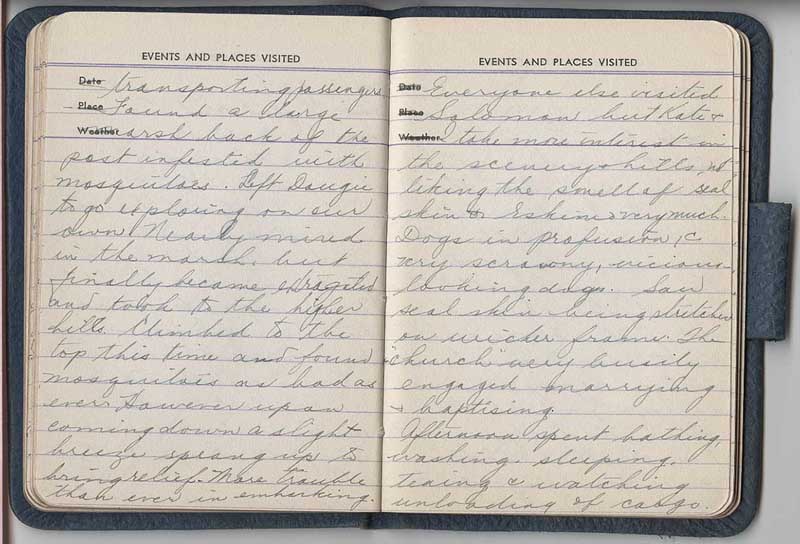 EVENTS AND PLACES VISITED
Date transporting passengers
Place - Found a large
Weather marsh back of the
post infested with
mosquitoes. Left Dougie
to go exploring on our
own. Nearly mired
in the marsh, but
finally became extracted
and took to the higher
hills. Climbed to the
top this time and found
mosquitoes as bad as
ever. However upon
coming down a slight
breeze sprang up to
bring relief. More trouble
than ever in embarking.
EVENTS AND PLACES VISITED
Date Everyone else visited
Place Solomon but Kate &
Weather I take more interest in
the scenery & hills, not
liking the smell of seal
skin & Eskimo very much.
Dogs in profusion, &
very scrawny, vicious
looking dogs. Saw
seal skin being stretched
on wicker frame. The
church very busily
engaged marrying
& baptising.
Afternoon spent bathing,
washing, sleeping,
teaing & watching
unloading of cargo.